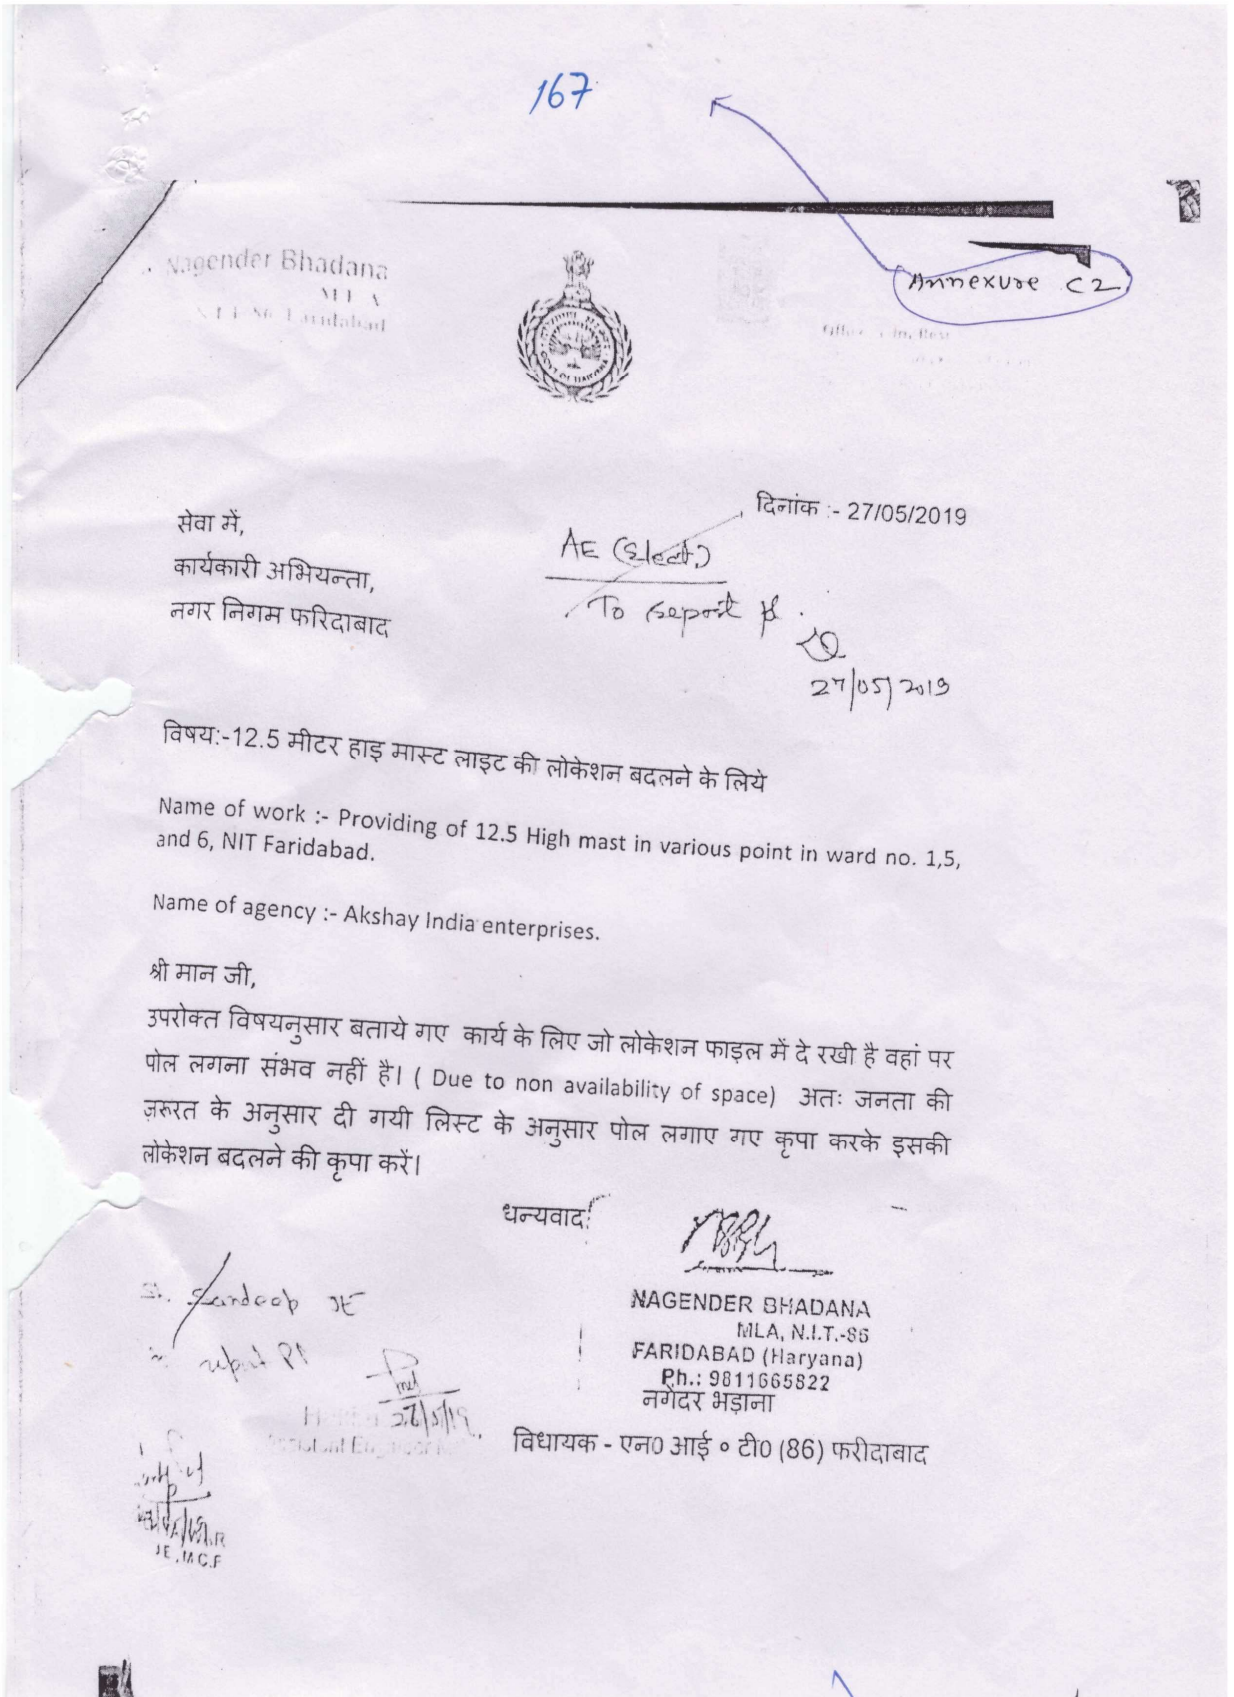 167
Annexure C2
Nagender Bhadana
MLA
Faridabad
दिनांक :- 27/05/2019
सेवा में,
कार्यकारी अभियन्ता,
नगर निगम फरिदाबाद
AE (Elect.)
To report pl.
27/05/2019
विषय:-12.5 मीटर हाइ मास्ट लाइट की लोकेशन बदलने के लिये
Name of work :- Providing of 12.5 High mast in various point in ward no. 1,5,
and 6, NIT Faridabad.
Name of agency :- Akshay India enterprises.
श्री मान जी,
उपरोक्त विषयनुसार बताये गए कार्य के लिए जो लोकेशन फाइल में दे रखी है वहां पर
पोल लगना संभव नहीं है। ( Due to non availability of space) अतः जनता की
ज़रुरत के अनुसार दी गयी लिस्ट के अनुसार पोल लगाए गए कृपा करके इसकी
लोकेशन बदलने की कृपा करें।
धन्यवाद!
Sandeep JE
report Pl
NAGENDER BHADANA
MLA, N.I.T.-86
FARIDABAD (Haryana)
Ph.: 9811665822
नगेदर भड़ाना
विधायक - एन0 आई ० टी0 (86) फरीदाबाद
JE.M.C.F